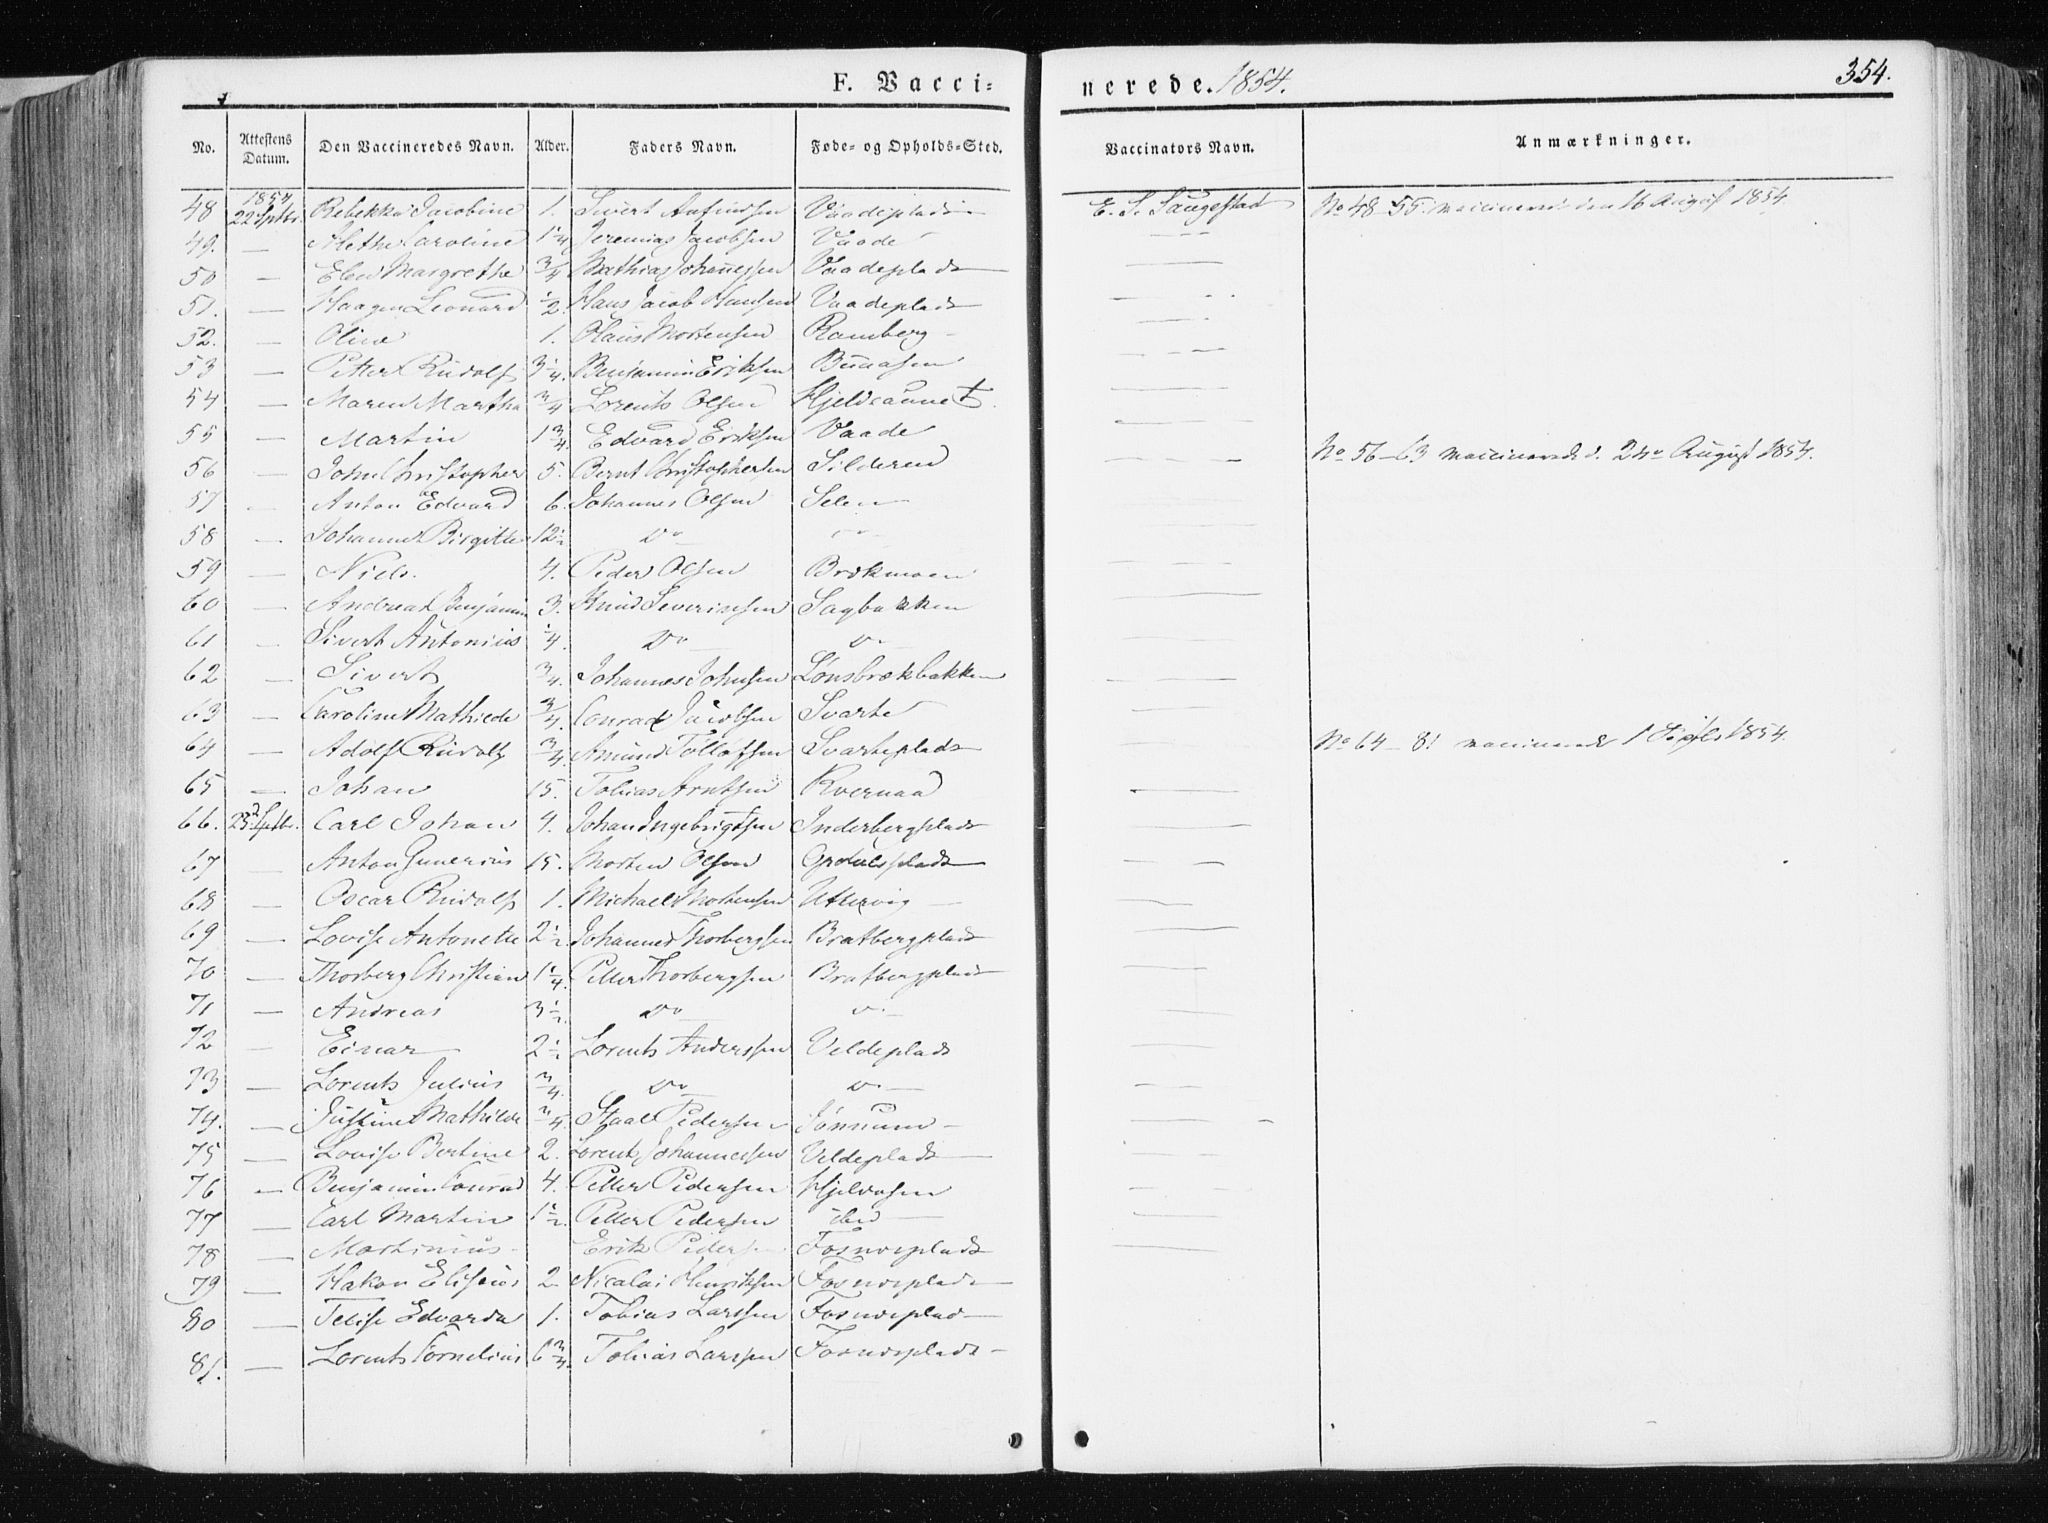 F. Vaccinerede. 1854. 354.
No. Attestens Datum. Den Vaccineredes Navn. Alder. Faders Navn. Føde- og Opholds-Sted. Vaccinators Navn. Anmærkninger.
48 1854 22 Septbr. Rebekka Jacobine 1. Sivert Anfindsen Vaadeplads E. S. Saugestad No 48-55. vaccinered den 16 August 1854.
49. — Alethe Caroline 1 1/4 Jeremias Jacobsen Vaade — — —
50 — Elen Margrethe 3/4 Mathias Johannessen Vaadeplads
51. — Haagen Leonard 1/2. Hans Jacob Hansen Vaadeplads
52. — Oline 1. Olaus Mortensen Ramberg
53 — Petter Rudolf 3 1/4. Benjamin Eriksen Buaasen
54 — Maren Martha 3/4 Lorents Olsen Hjeldsaunet.
55 — Martin 1 3/4. Edvard Eriksen Vaade
56 — John Christopher 5. Bernt Christophersen Silderen No 56-63 vaccinerede d. 24de August 1854.
57 — Anton Edvard 6. Johannes Olsen Selen
58 — Johanne Birgitte 12 1/2 Do
59 — Niels. 4. Peder Olsen Brækmoen
60 — Andreas Benjamin 3. Knud Severinsen Sagbakken
61 — Sivert Antonius 1/4. Do Do
62 — Sivert 3/4. Johannes Johnsen Lønsbrækbakken
63 — Caroline Mathilde 3/4. Conrad Jacobsen Svarte
64 — Adolf Rudolf 3/4. Amund Tollefsen Svarteplads No 64-81 vaccinerede 1 Septbr 1854.
65 — Johan 15. Tobias Arntsen Kvernaa
66. 23 Septbr. Carl Johan 4. Johan Ingebrigtsen Inderbergplads
67 — Anton Gunerius 15. Morten Olsen
68 — Oscar Rudolf 1. Michael Uttervig
69 — Lovise Antonette 2 1/2. Johannes Thorbergsen Bratbergplads
70 — Thorberg Christian 1 1/4. Petter Thorbergsen Bratbergplads
71 — Andreas 3 1/2. Do Do
72 — Einar 2 1/2 Lorents Anderssen Veldeplads
73 — Lorents Julius 3/4. Do Do
74. — Justine Mathilde 3/4 Staal Pedersen Jønnum
75 — Lovise Bertine 2. Lorent Johannessen Veldeplads
76 — Benjamin Conrad 4. Petter Pedersen Hjeldosen
77 — Carl Martin 1 1/2. Petter Pedersen ibid
78 — Martinius Erik Peders Fosnesplads
79 — Hakon Eliseus 2 Nicolai Henriksen Fosnesplads
80 — Telise Edvarda 1. Tobias Larssen Fosnesplad
81. — Lorents Cornelius 6 3/4. Tobias Larssen Fosnesplads